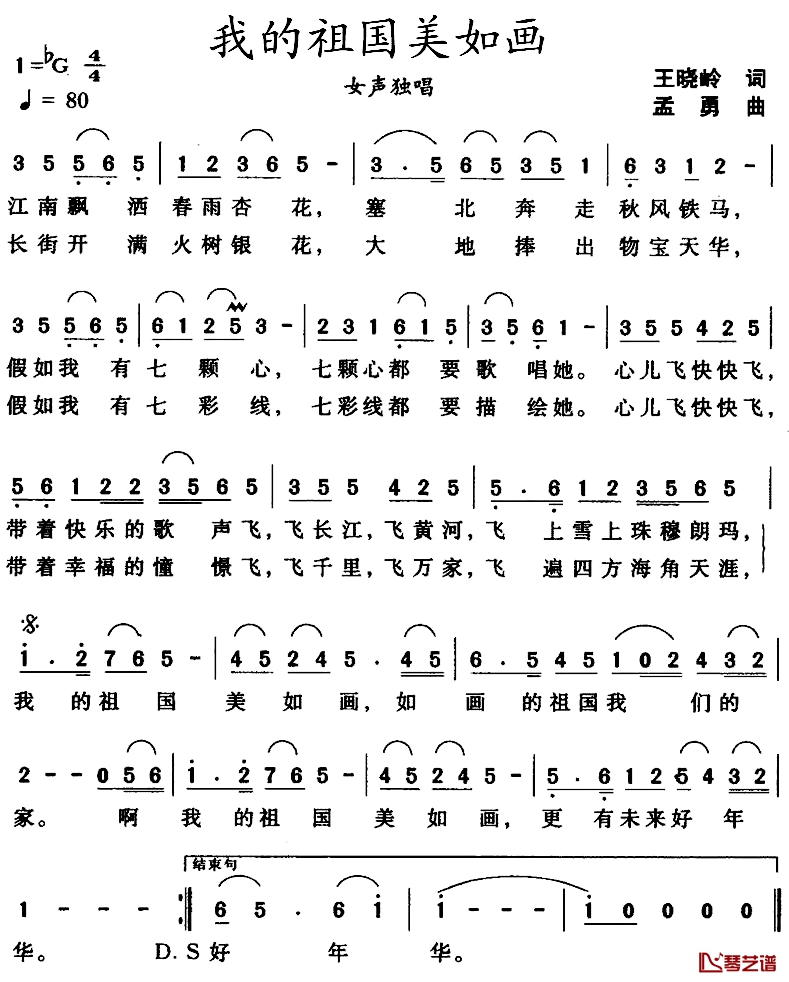 我的祖国美如画
1=♭G 4/4
♩= 80
女声独唱
王晓岭 词
孟 勇 曲
3 5 5 6 5 | 1 2 3 6 5 - | 3 . 5 6 5 3 5 1 | 6 3 1 2 - |
江南飘 洒春雨杏 花, 塞 北 奔 走秋风铁马,
长街开 满火树银 花, 大 地 捧 出物宝天华,
3 5 5 6 5 | 6 1 2 5 3 - | 2 3 1 6 1 5 | 3 5 6 1 - | 3 5 5 4 2 5 |
假如我 有七 颗 心, 七颗心都 要歌 唱她。心儿飞快快飞,
假如我 有七 彩 线, 七彩线都 要描 绘她。心儿飞快快飞,
5 6 1 2 2 3 5 6 5 | 3 5 5 4 2 5 | 5 . 6 1 2 3 5 6 5 |
带着快乐的歌 声飞,飞长江,飞黄河,飞 上雪上珠穆朗玛,
带着幸福的憧 憬飞,飞千里,飞万家,飞 遍四方海角天涯,
1 . 2 7 6 5 - | 4 5 2 4 5 . 4 5 | 6 . 5 4 5 1 0 2 4 3 2 |
我 的祖 国 美 如 画, 如 画 的祖国我 们的
2 - - 0 5 6 | 1 . 2 7 6 5 - | 4 5 2 4 5 - | 5 . 6 1 2 5 3 2 |
家。 啊 我 的祖 国 美 如 画, 更 有未来好 年
结束句
1 - - - :‖ 6 5 . 6 1 | 1 - - - | 1 0 0 0 0 ‖
华。 D.S好 年 华。
琴艺谱